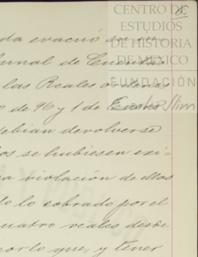 CENTRO DE
ESTUDIOS
DE HISTORIA
DE MÉXICO
FUNDACIÓN
da evacuó
bunal de Cuentas
las Reales ordenes
de 96 y 1 de Enero
debian devolverse
los se hubiesen exi
a violacion de ellos
do lo cobrado por el
cuatro reales desde
norlo que, y tener